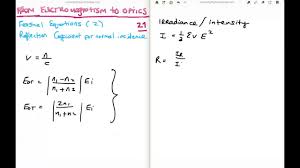 FROM ELECTROMAGNETISM TO OPTICS
Fresnel Equations (2)
29
Reflection Coefficient for normal incidence
V = n/c
E₀r = |n₁-n₂/n₁+n₂| Ei
E₀T = |2n₁/n₁+n₂| Ei
Irradiance / Intensity
I = 1/2 ε v E²
R = IR/I